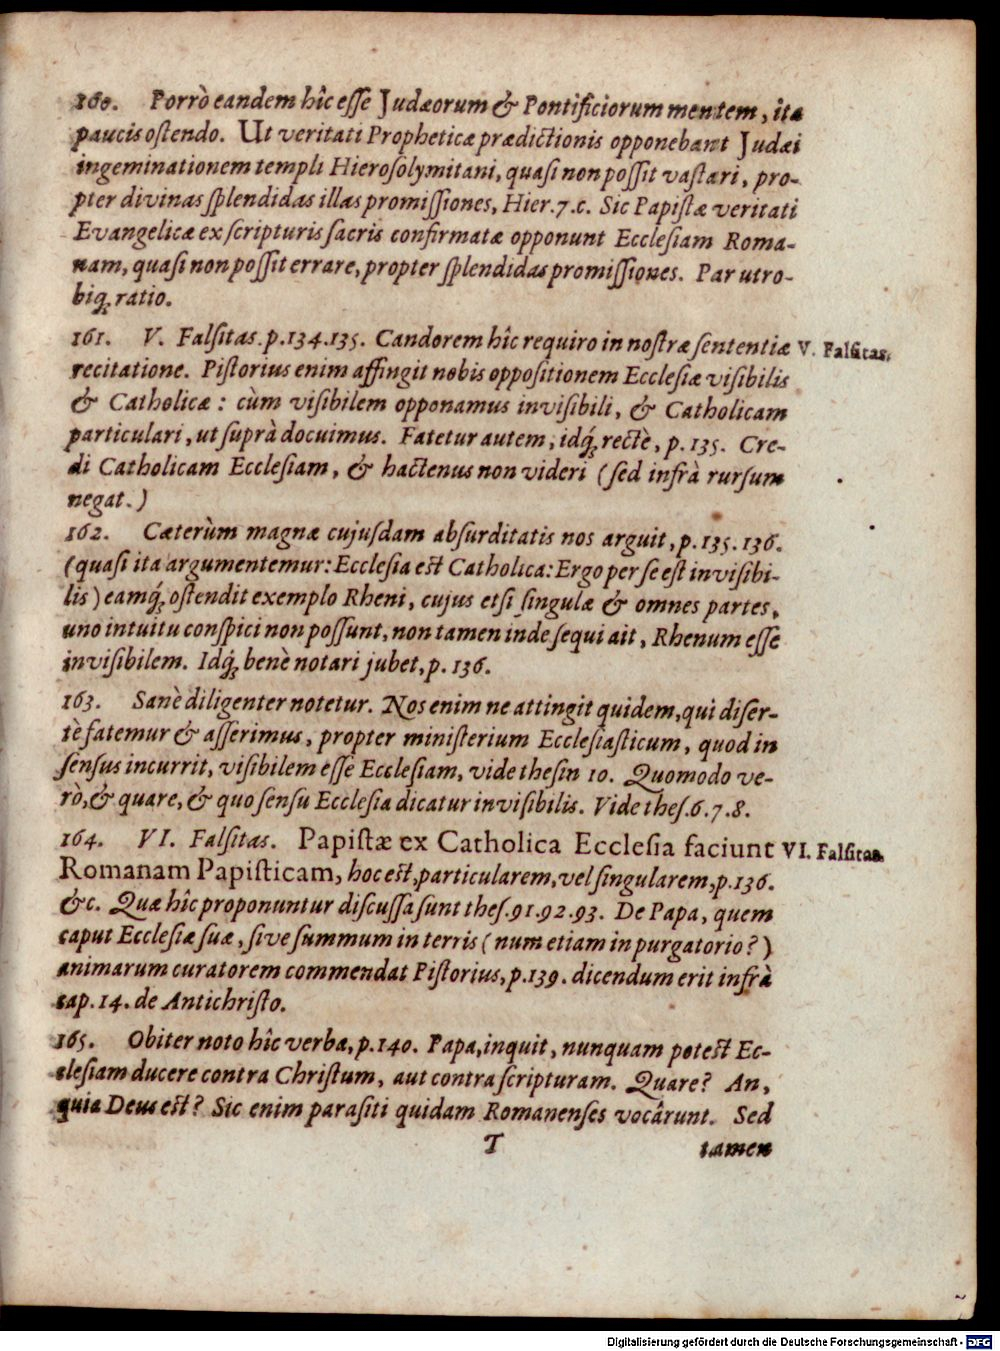 160. Porrò eandem hîc esse Judæorum & Pontificiorum mentem, ita
paucis ostendo. Ut veritati Propheticæ prædictionis opponebant Judæi
ingeminationem templi Hierosolymitani, quasi non possit vastari, pro-
pter divinas splendidas illas promissiones, Hier.7.c. Sic Papistæ veritati
Evangelicæ ex scripturis sacris confirmatæ opponunt Ecclesiam Roma-
nam, quasi non possit errare, propter splendidas promissiones. Par utro-
biq; ratio.
161. V. Falsitas. p.134.135. Candorem hîc requiro in nostræ sententiæ
V. Falsitas.
recitatione. Pistorius enim affingit nobis oppositionem Ecclesiæ visibilis
& Catholicæ: cùm visibilem opponamus invisibili, & Catholicam
particulari, ut suprà docuimus. Fatetur autem, idq́; rectè, p.135. Cre-
di Catholicam Ecclesiam, & hactenus non videri (sed infrà rursum
negat.)
162. Cæterùm magnæ cujusdam absurditatis nos arguit, p.135.136.
(quasi ita argumentemur: Ecclesia est Catholica: Ergo per se est invisibi-
lis) eamq́; ostendit exemplo Rheni, cujus etsi singulæ & omnes partes,
uno intuitu conspici non possunt, non tamen inde sequi ait, Rhenum esse
invisibilem. Idq́; benè notari jubet, p.136.
163. Sanè diligenter notetur. Nos enim ne attingit quidem, qui diser-
tè fatemur & asserimus, propter ministerium Ecclesiasticum, quod in
sensus incurrit, visibilem esse Ecclesiam, vide thesin 10. Quomodo ve-
rò, & quare, & quo sensu Ecclesia dicatur invisibilis. Vide thes.6.7.8.
164. VI. Falsitas. Papistæ ex Catholica Ecclesia faciunt
VI. Falsitas.
Romanam Papisticam, hoc est, particularem, vel singularem, p.136.
&c. Quæ hîc proponuntur discussa sunt thes.91.92.93. De Papa, quem
caput Ecclesiæ suæ, sive summum in terris (num etiam in purgatorio?)
animarum curatorem commendat Pistorius, p.139. dicendum erit infrà
cap.14. de Antichristo.
165. Obiter noto hîc verba, p.140. Papa, inquit, nunquam potest Ec-
clesiam ducere contra Christum, aut contra scripturam. Quare? An,
quia Deus est? Sic enim parasiti quidam Romanenses vocârunt. Sed
T
tamen
Digitalisierung gefördert durch die Deutsche Forschungsgemeinschaft - DFG